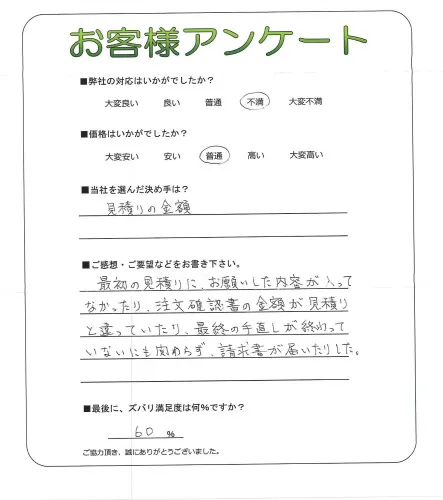 お客様アンケート
■弊社の対応はいかがでしたか?
大変良い 良い 普通 不満 大変不満
■価格はいかがでしたか?
大変安い 安い 普通 高い 大変高い
■当社を選んだ決め手は?
見積りの金額
■ご感想・ご要望などをお書き下さい。
最初の見積りに、お願いした内容が入って
なかったり、注文確認書の金額が見積り
と違っていたり、最終の手直しが終わって
いないにも関わらず、請求書が届いたりした。
■最後に、ズバリ満足度は何%ですか?
60 %
ご協力頂き、誠にありがとうございました。